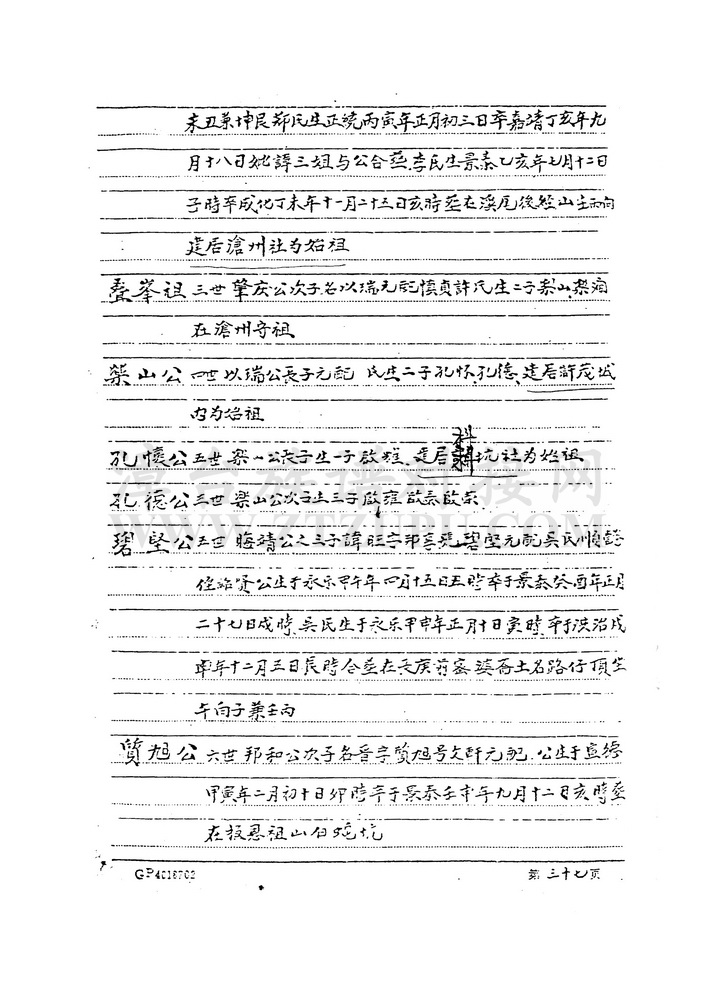 未丑兼坤艮郑氏生正统丙寅年正月初三日卒嘉靖丁亥年九
月十八日妣諱三姐与公合葬.李氏生景泰乙亥年七月十二日
子時卒成化丁未年十一月二十五日亥時葬在溪尾後 山壬丙向
建居滄州社为始祖
叠峯祖 三世肇庆公次子名以瑞元配慎貞許氏生二子梨山,
在滄州守祖
築山公 四世以瑞公長子元配 氏生二子孔怀,孔德,建居許茂城
内为始祖
孔懷公五世 山公長子生一子啟 ,建居科坑社为始祖
孔德公三世 山公次子生三子啟 啟泰啟
碧堅公五世 晦靖公之三子諱 字 号碧堅元配吴氏順懿
公生于永乐甲午年四月十五日五時卒于景泰癸酉年正月
二十七日戍時,吴氏生于永乐甲申年正月十日寅時,卒于洪治戍
年十二月三日辰時合葬在長庚 土名路仔頂坐
午向子兼壬丙
質旭公 六世邦和公次子名晋字質旭号文轩元配.公生于宣德
甲寅年二月初十日卯時卒于景泰壬申年九月十二日亥時葬
在报恩祖山白 坑
GP4018702
第三十七页
漳台族谱对接网
WWW.ZTZUPU.COM